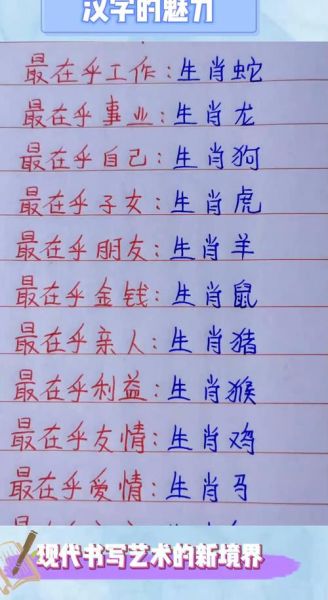 汉字的魅力
最在乎工作:生肖蛇
最在乎事业:生肖龙
最在乎自己:生肖狗
最在乎子女:生肖虎
最在乎朋友:生肖羊
最在乎金钱:生肖鼠
最在乎亲人:生肖猪
最在乎利益:生肖猴
最在乎友情:生肖鸡
最在乎爱情:生肖马
现代书写艺术的新境界